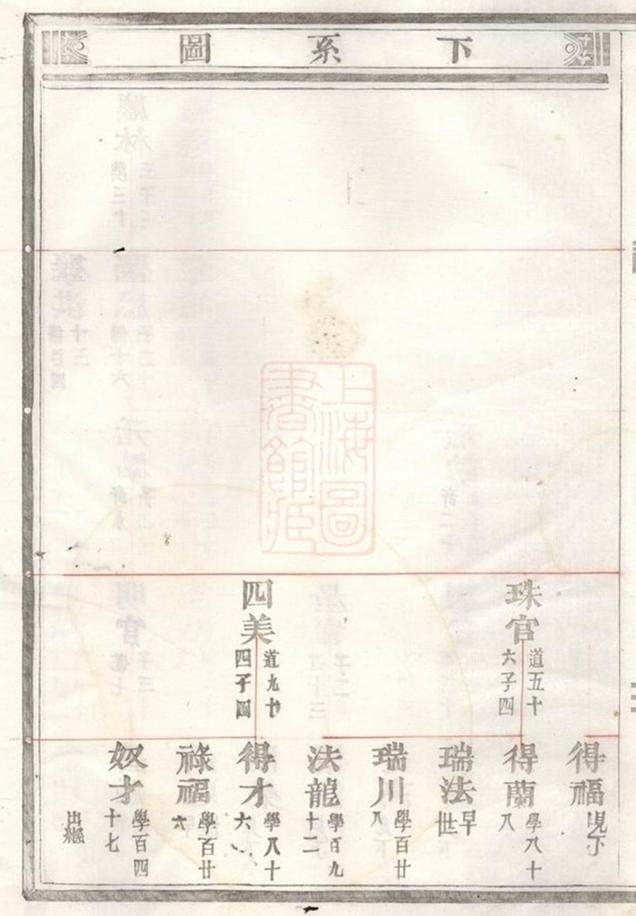 下系圖
珠官
道五十六子四
四美
道九十四子四
得福
見下
得蘭
學八十八
瑞法
早世
瑞川
學百廿八
法龍
學百九十二
得才
學八十六
祿福
學百廿六
奴才
學百四十七
出繼
上海圖書館臧